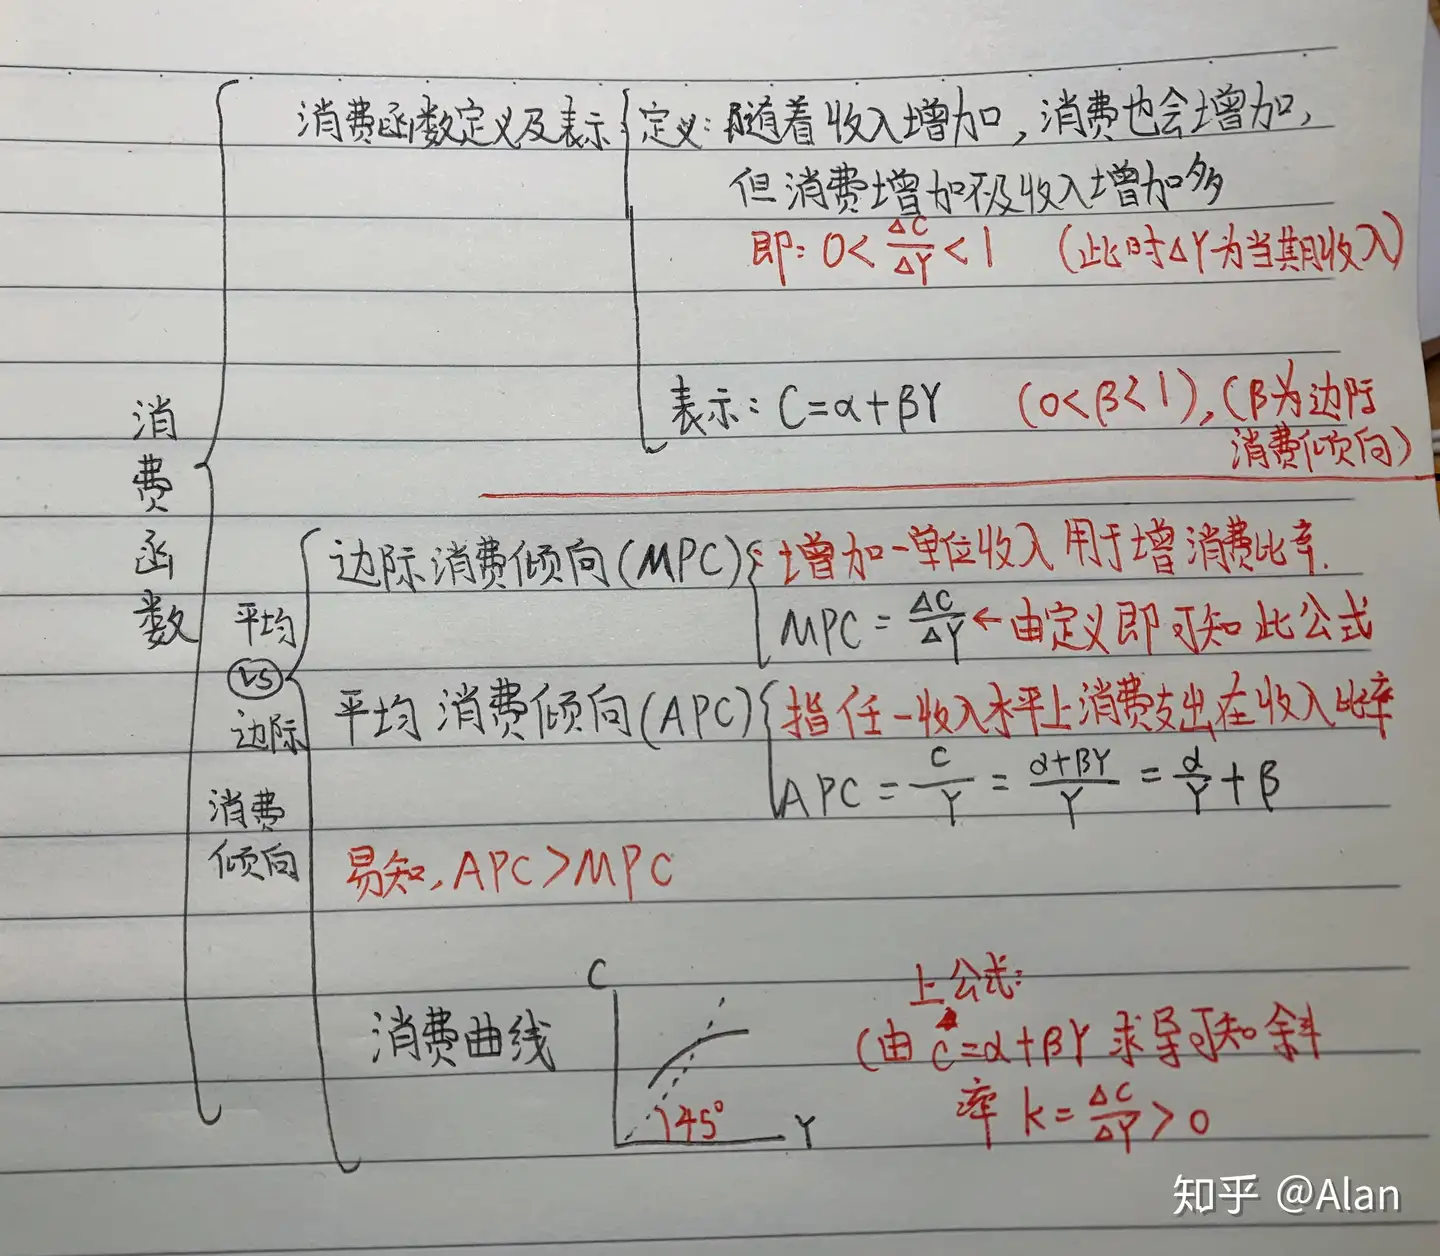 消费函数
消费函数定义及表示
定义：随着收入增加，消费也会增加，
但消费增加不及收入增加多
即：0<ΔC/ΔY<1 （此时ΔY为当期收入）
表示：C=α+βY （0<β<1），（β为边际
消费倾向）
平均
VS
边际
消费
倾向
边际消费倾向(MPC)
增加一单位收入用于增消费比率.
MPC=ΔC/ΔY←由定义即可知此公式
平均消费倾向(APC)
指任一收入水平上消费支出在收入比率
APC=C/Y=α+βY/Y=α/Y+β
易知，APC>MPC
消费曲线
C
45°
Y
上公式：
（由C=α+βY求导可知斜
率k=ΔC/ΔY>0
知乎 @Alan